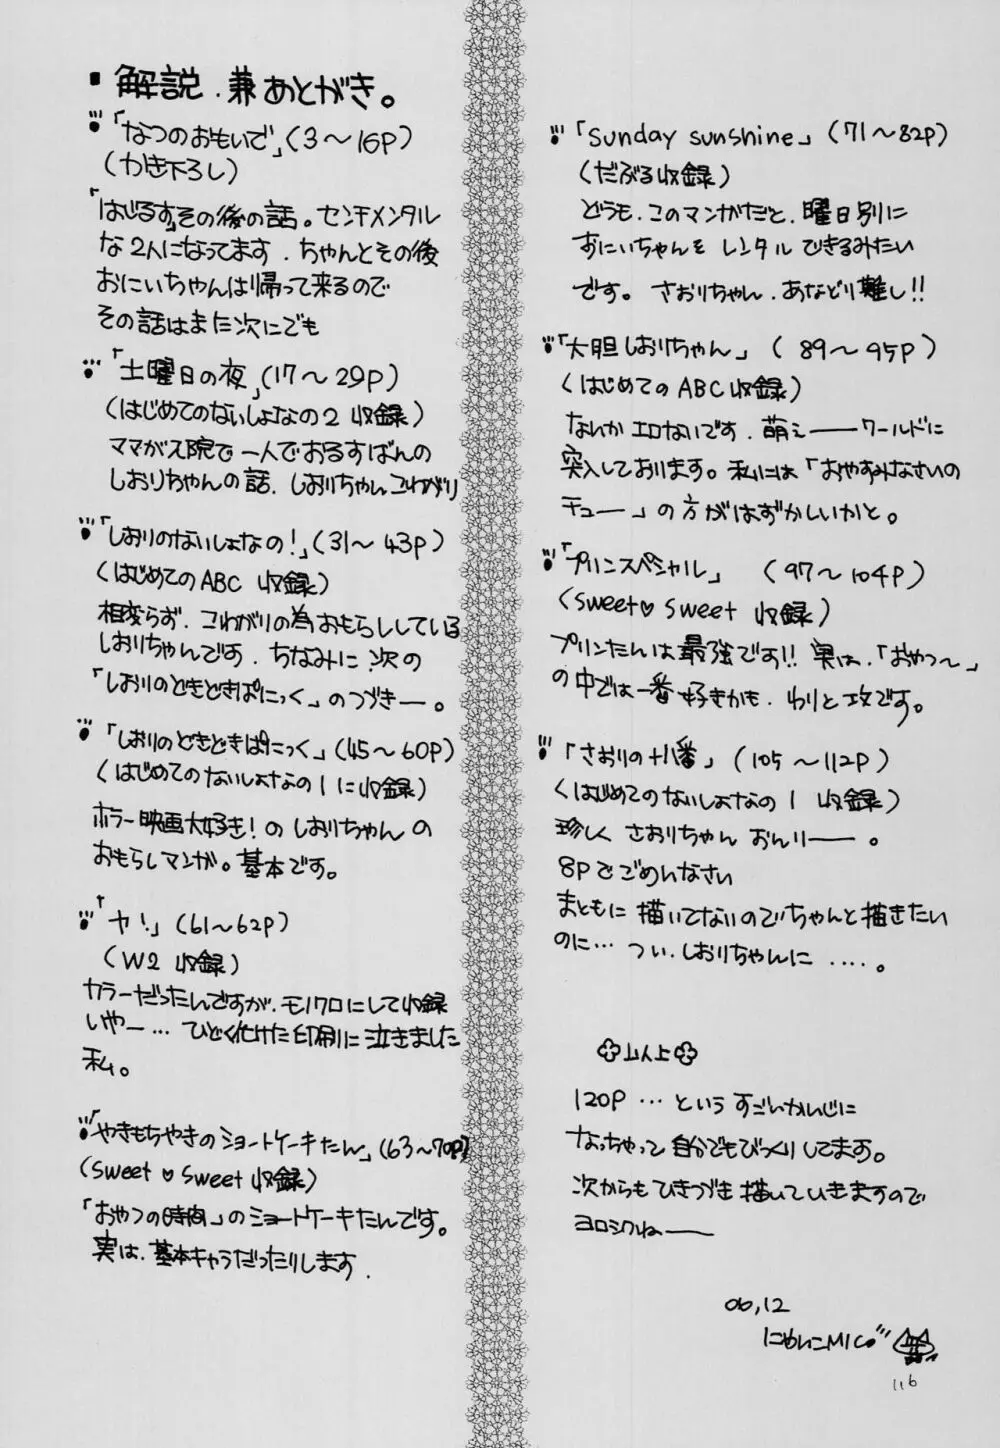 ・解説.兼あとがき。
「なつのおもいで」(3～16P)
(かき下ろし)
「はじるす」その後の話。センチメンタル
な2人になってます.ちゃんとその後
おにいちゃんは帰って来るので
その話はまた次にでも
「土曜日の夜」(17～29P)
(はじめてのないしょなの2 収録)
ママが入院で一人でおるすばんの
しおりちゃんの話.しおりちゃんこわがり
「しおりのないしょなの!」(31～43P)
(はじめてのABC 収録)
相変らず.こわがりの為おもらししている
しおりちゃんです.ちなみに次の
「しおりのどきどきぱにっく」のつづきー。
「しおりのどきどきぱにっく」(45～60P)
(はじめてのないしょなの1に収録)
ホラー映画大好き!のしおりちゃんの
おもらしマンガ。基本です。
「ヤ!」(61～62P)
(W2 収録)
カラーだったんですが.モノクロにして収録
いやー…ひどく化けた印刷に泣きました
私。
「やきもちやきのショートケーキたん」(63～70P)
(Sweet♡Sweet 収録)
「おやつの時間」のショートケーキたんです。
実は.基本キャラだったりします.
「Sunday sunshine」(71～82P)
(だぶる収録)
どうも.このマンガだと.曜日別に
おにいちゃんをレンタルできるみたい
です。さおりちゃん.あなどり難し!!
「大胆しおりちゃん」(89～95P)
(はじめてのABC収録)
なんかエロないです.萌えーワールドに
突入しております。私には「おやすみなさいの
チュー」の方がはずかしいかと。
「プリンスペシャル」(97～104P)
(Sweet♡Sweet 収録)
プリンたんは最強です!!実は.「おやつ～」
の中では一番好きかも.わりと攻です。
「さおりの十八番」(105～112P)
(はじめてのないしょなの1 収録)
珍しくさおりちゃんおんりー。
8Pでごめんなさい
まともに描いてないのでちゃんと描きたい
のに…つい.しおりちゃんに…..。
以上
120P…というすごいかんじに
なっちゃって自分でもびっくりしてます。
次からもひきつづき描いていきますので
ヨロシクねー
06,12
にゃんこMIC
116